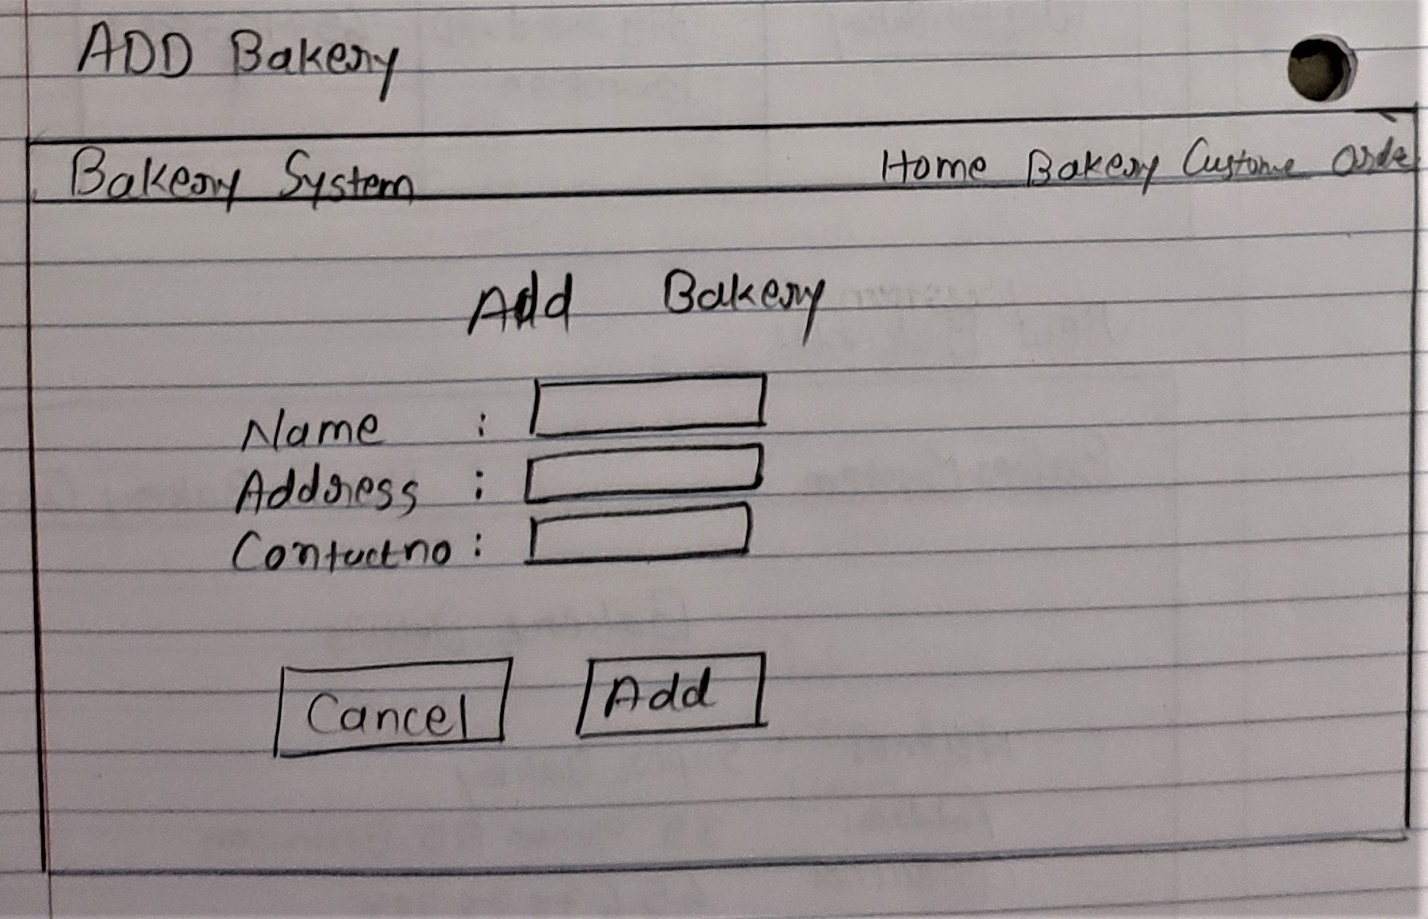 ADD Bakery
Bakery System Home Bakery Custome Orde
Add Bakery
Name :
Address :
Contactno :
Cancel Add